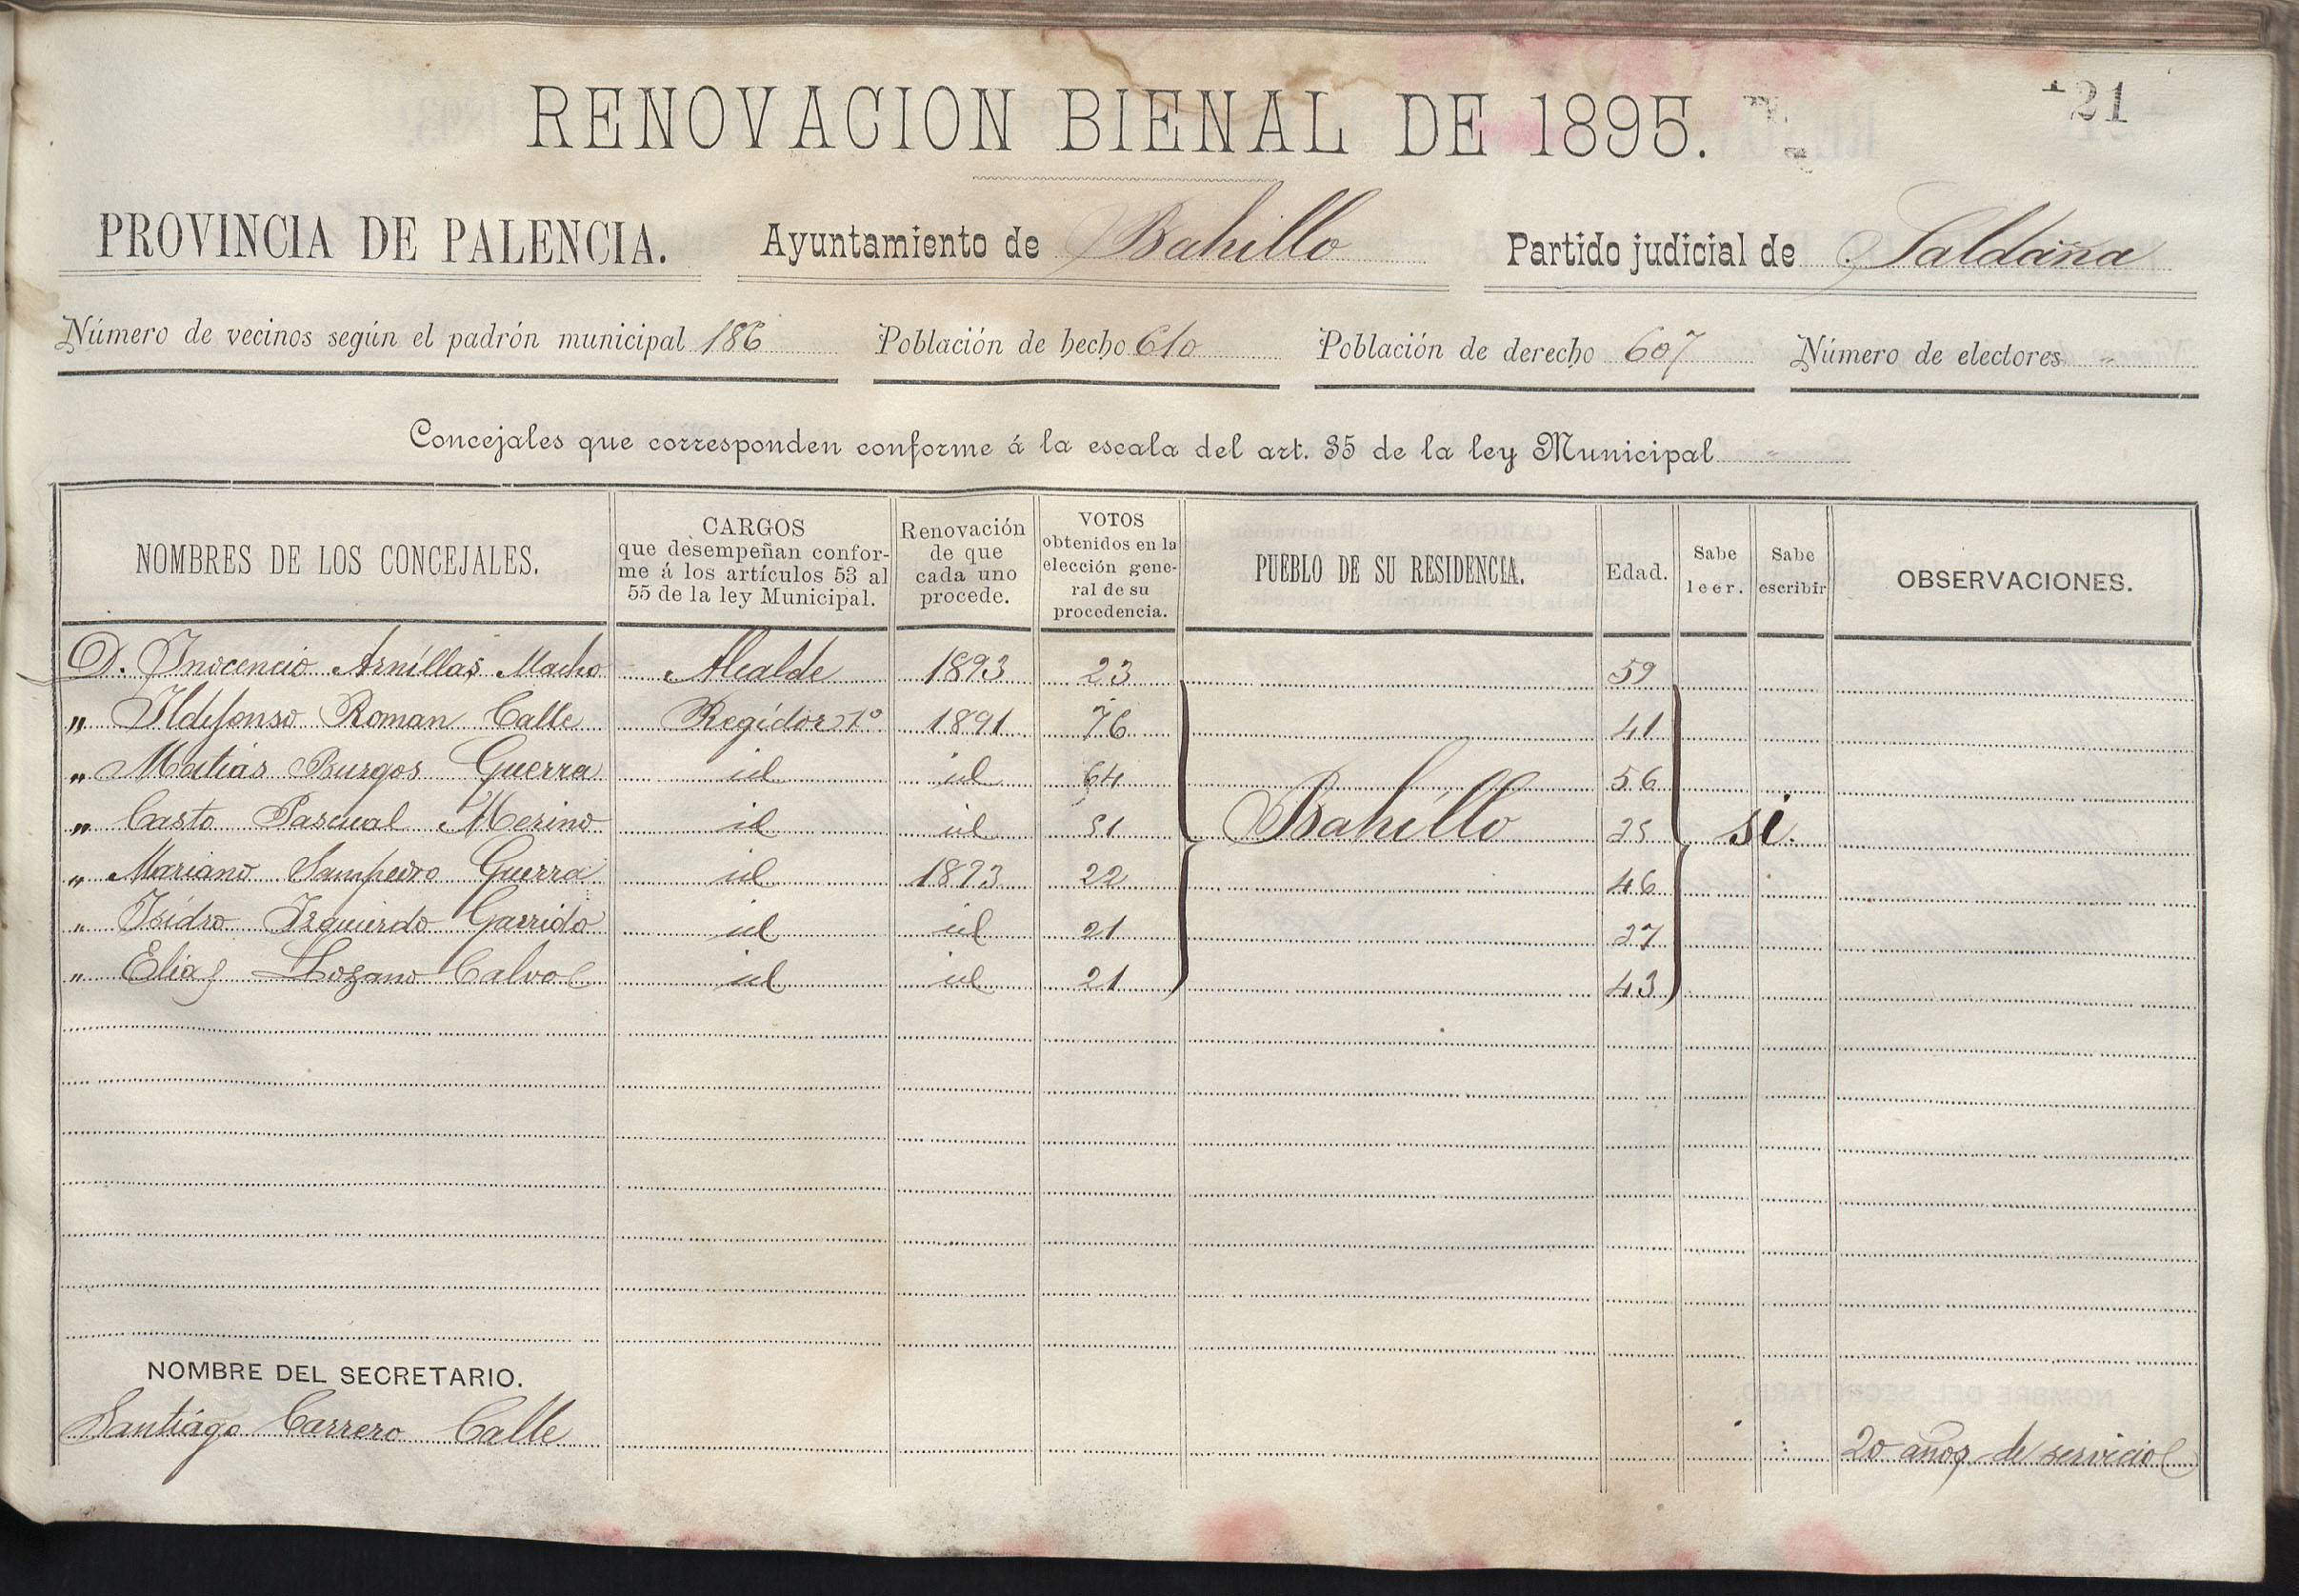 21
RENOVACION BIENAL DE 1895.
PROVINCIA DE PALENCIA. Ayuntamiento de Bahillo Partido judicial de Saldaña
Número de vecinos según el padrón municipal 186 Población de hecho 610 Población de derecho 607 Número de electores "
Concejales que corresponden conforme á la escala del art. 35 de la ley Municipal "
NOMBRES DE LOS CONCEJALES. CARGOS que desempeñan conforme á los artículos 53 al 55 de la ley Municipal. Renovación de que cada uno procede. VOTOS obtenidos en la elección general de su procedencia. PUEBLO DE SU RESIDENCIA. Edad. Sabe leer. Sabe escribir OBSERVACIONES.
D. Inocencio Arnillas Macho Alcalde 1893 23 59
" Ildefonso Roman Calle Regidor 1º 1891 76 41
" Matias Burgos Guerra id id 64 56
" Casto Pascual Merino id id 51 Bahillo 25 si.
" Mariano Sampedro Guerra id 1893 22 46
" Isidro Izquierdo Garrido id id 21 27
" Elias Lozano Calvo id id 21 43
NOMBRE DEL SECRETARIO.
Santiágo Carrero Calle 20 años de servicio